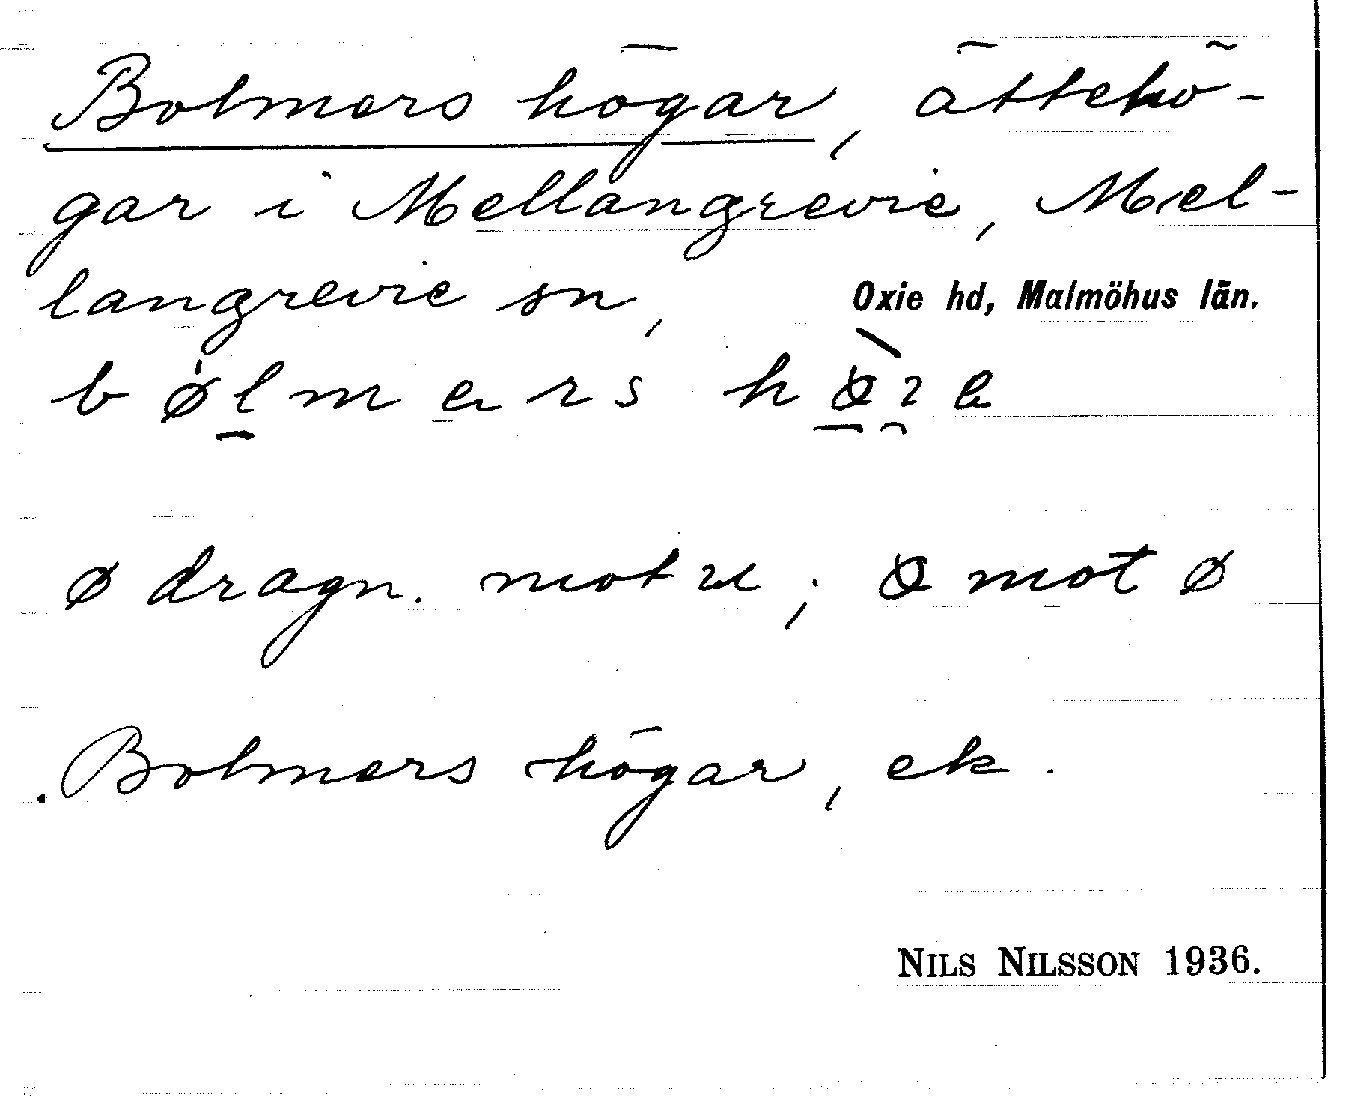 Bolmers högar, ättehö-
gar i Mellangrevie, Mel-
langrevie sn, Oxie hd, Malmöhus län.
ø dragn. mot u; ꝏ mot ø
Bolmers högar, ek.
NILS NILSSON 1936.